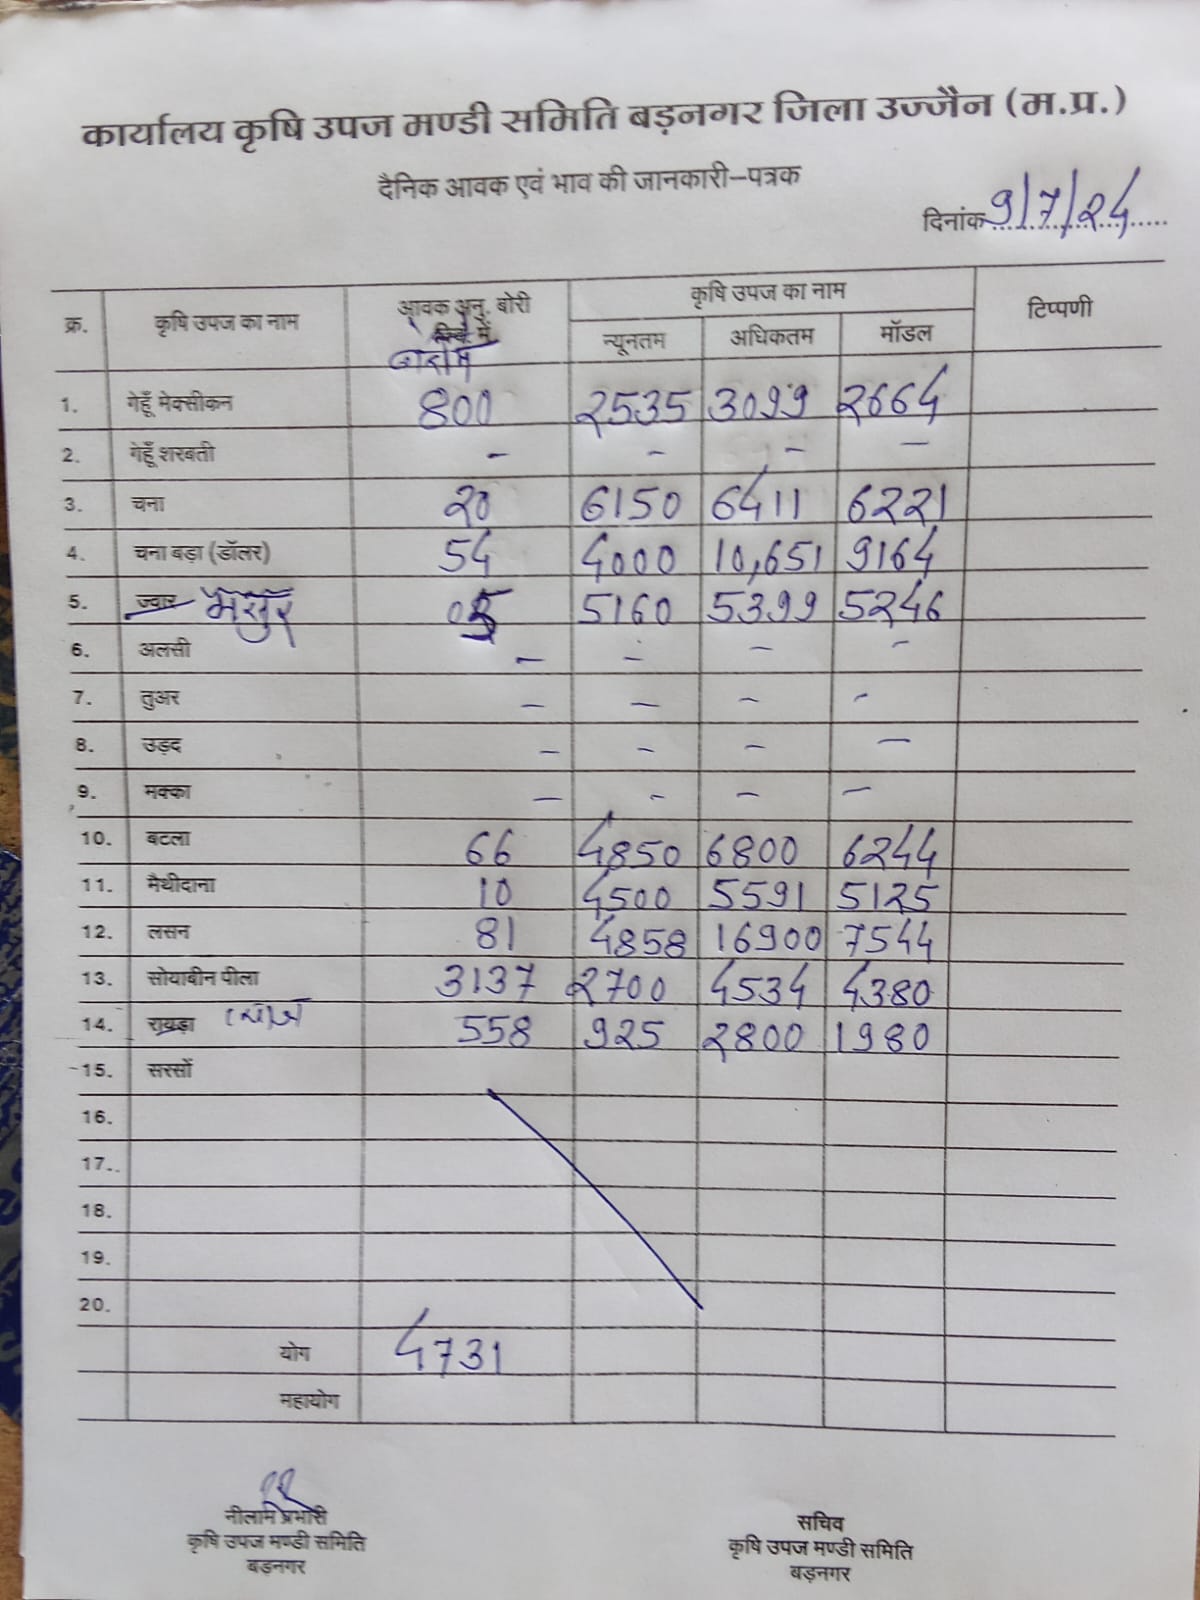 कार्यालय कृषि उपज मण्डी समिति बड़नगर जिला उज्जैन (म.प्र.)
दैनिक आवक एवं भाव की जानकारी–पत्रक
दिनांक 9/7/24
क्र. कृषि उपज का नाम आवक अनु. बोरी में कृषि उपज का नाम टिप्पणी
न्यूनतम अधिकतम मॉडल
1. गेहूँ मेक्सीकन 800 2535 3099 2664
2. गेहूँ शरबती - - - -
3. चना 20 6150 6411 6221
4. चना बड़ा (डॉलर) 54 4000 10,651 9164
5. ज्वार मसुर 05 5160 5399 5246
6. अलसी - - - -
7. तुअर - - - -
8. उड़द - - - -
9. मक्का - - - -
10. बटला 66 4850 6800 6244
11. मैथीदाना 10 4500 5591 5125
12. लसन 81 4858 16900 7544
13. सोयाबीन पीला 3137 2700 4534 4380
14. रायड़ा प्याज 558 925 2800 1980
15. सरसों
16.
17.
18.
19.
20.
योग 4731
महायोग
नीलाम प्रभारी
कृषि उपज मण्डी समिति
बड़नगर
सचिव
कृषि उपज मण्डी समिति
बड़नगर